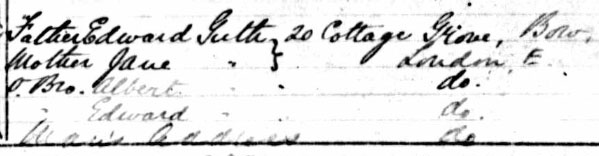 Father Edward Guth } 20 Cottage Grove, Bow,
Mother Jane " } London, E
o. Bro. Albert " do.
" Edward " do.
Man's Address do